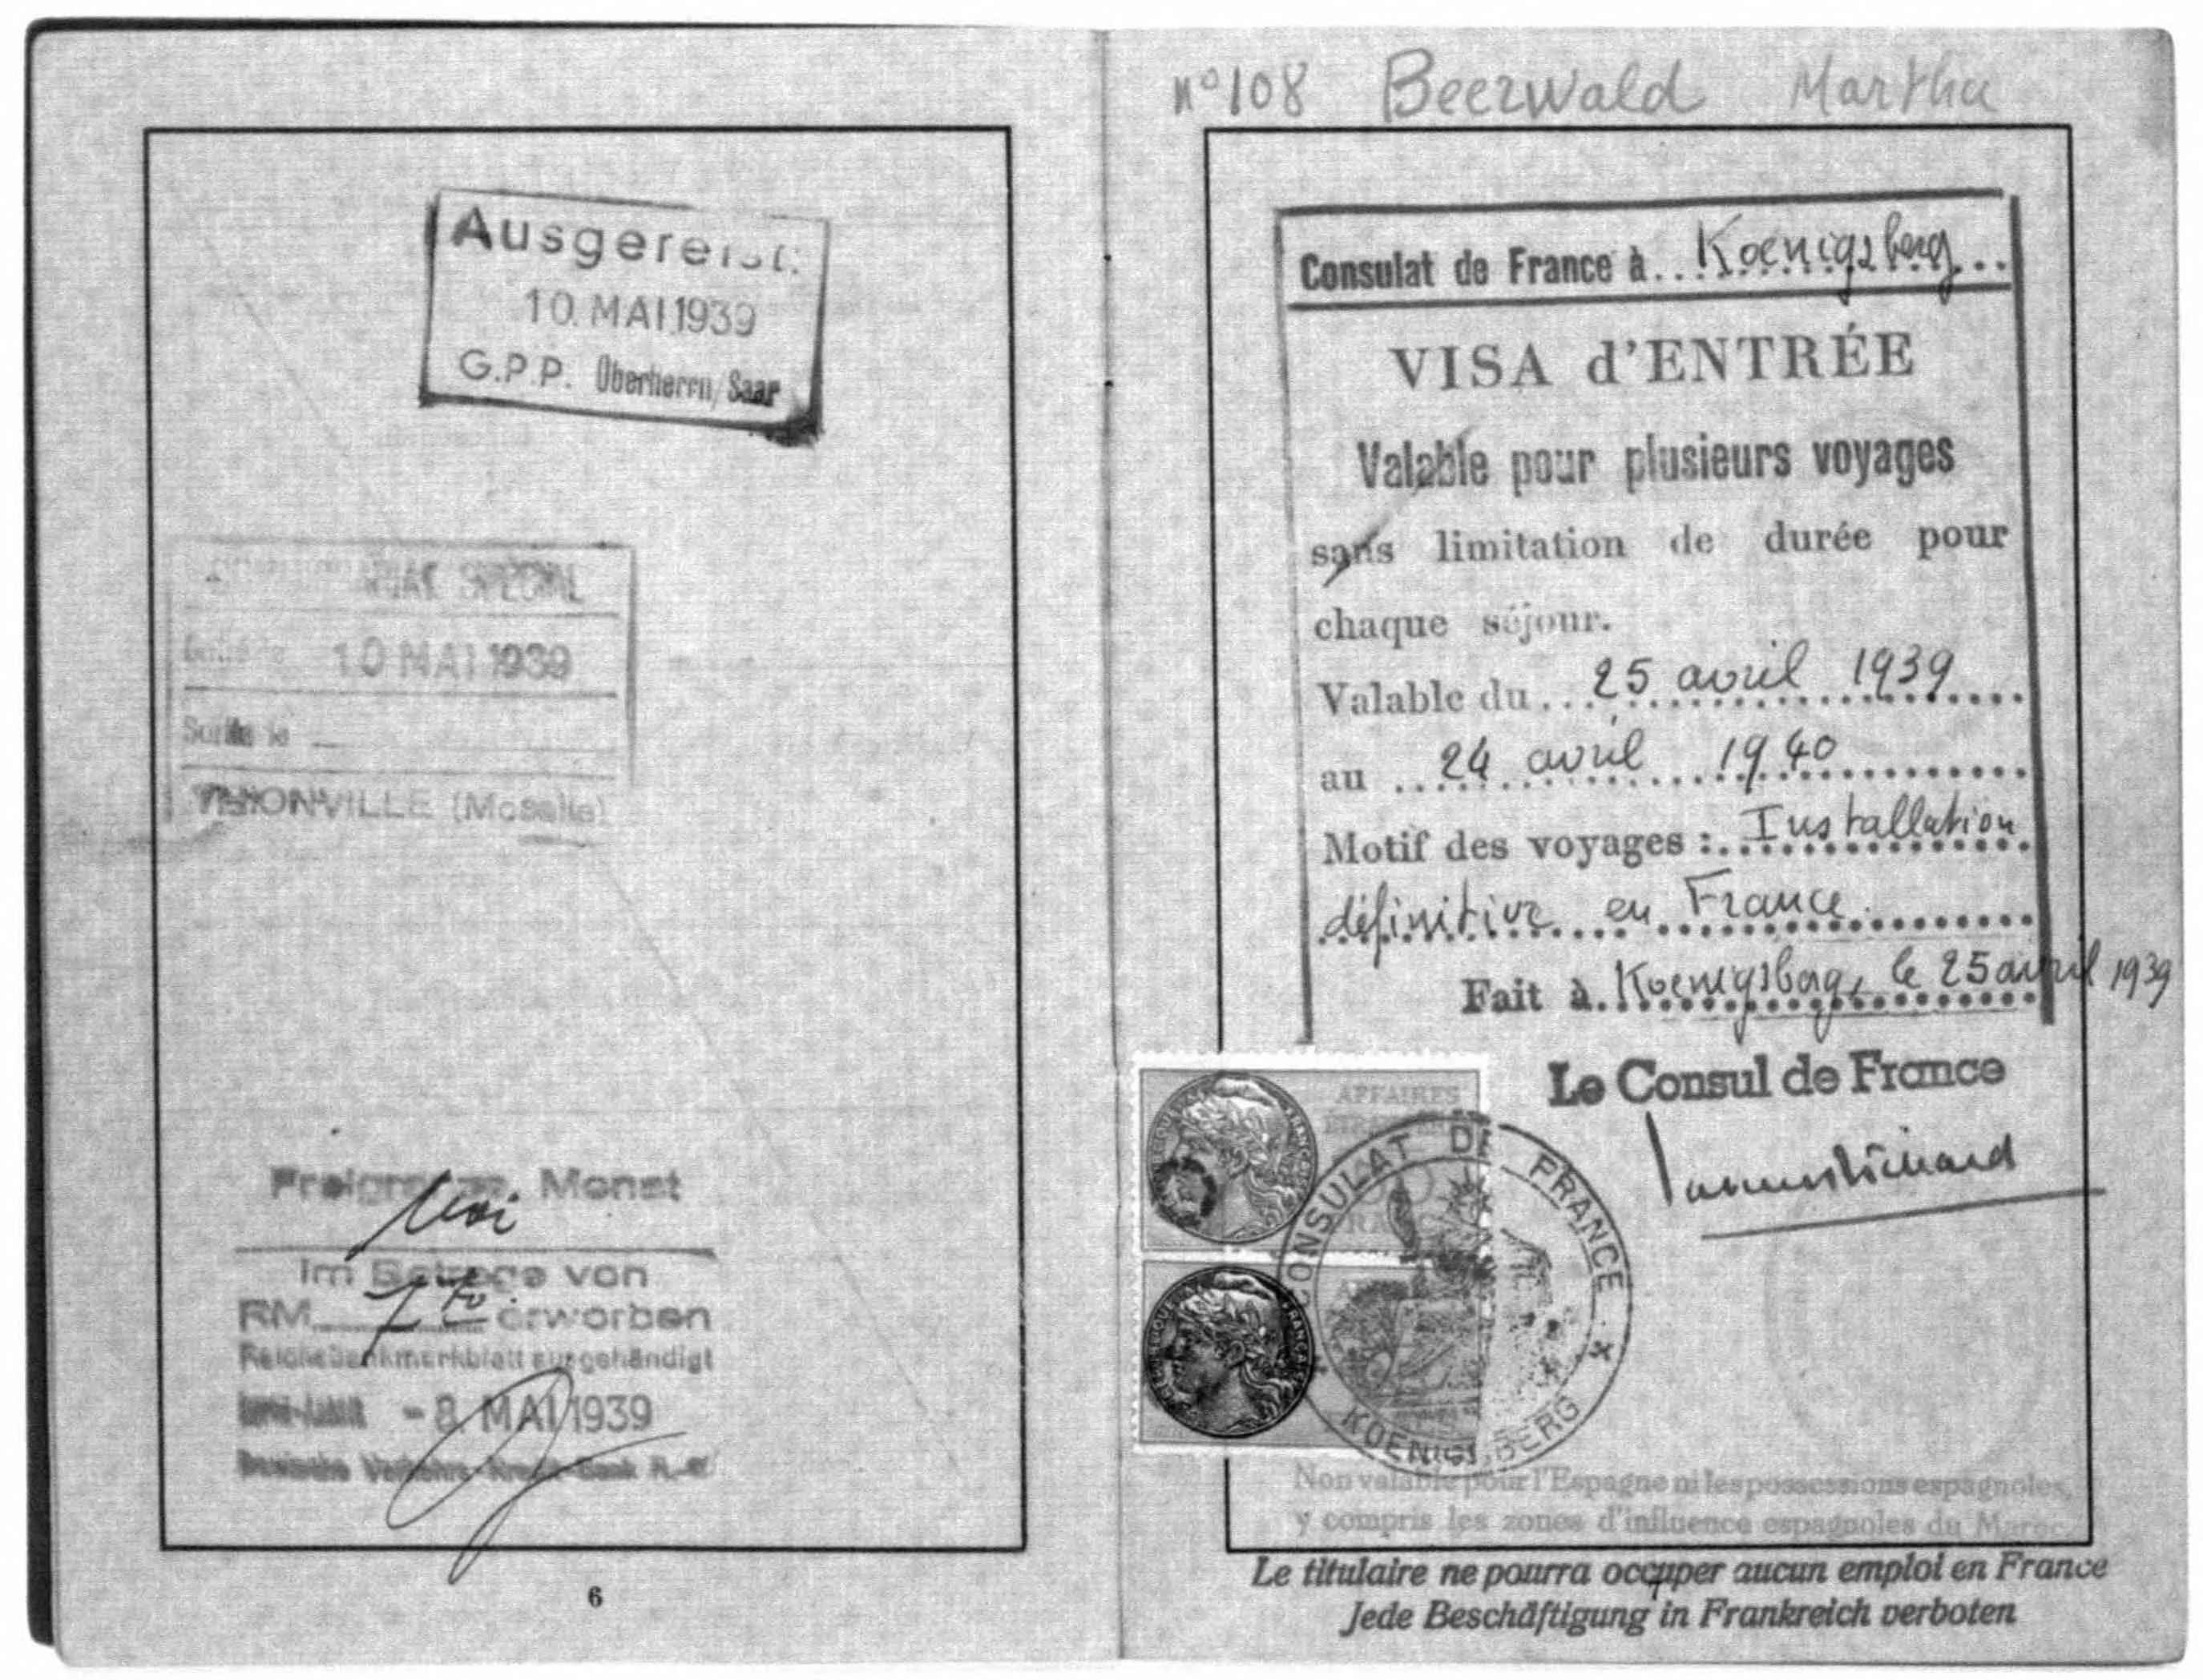 Ausgereist:
10. MAI 1939
G.P.P. Überherrn/Saar
SPÉCIAL
10 MAI 1939
Sortie le
THIONVILLE (Moselle)
Freigrenze, Monat
Mai
im Betrage von
RM erworben
Reichsbankmerkblatt ausgehändigt
- 8. MAI 1939
Deutsche Verkehrs-Kredit-Bank A.-G.
6
n° 108 Beerwald Martha
Consulat de France à Koenigsberg
VISA d'ENTRÉE
Valable pour plusieurs voyages
sans limitation de durée pour
chaque séjour.
Valable du 25 avril 1939
au 24 avril 1940
Motif des voyages : Installation
définitive en France
Fait à Koenigsberg, le 25 avril 1939
Le Consul de France
AFFAIRES
ÉTRANGÈRES
CONSULAT DE FRANCE
KOENIGSBERG
Non valable pour l'Espagne ni les possessions espagnoles,
y compris les zones d'influence espagnoles du Maroc.
Le titulaire ne pourra occuper aucun emploi en France
7
Jede Beschäftigung in Frankreich verboten